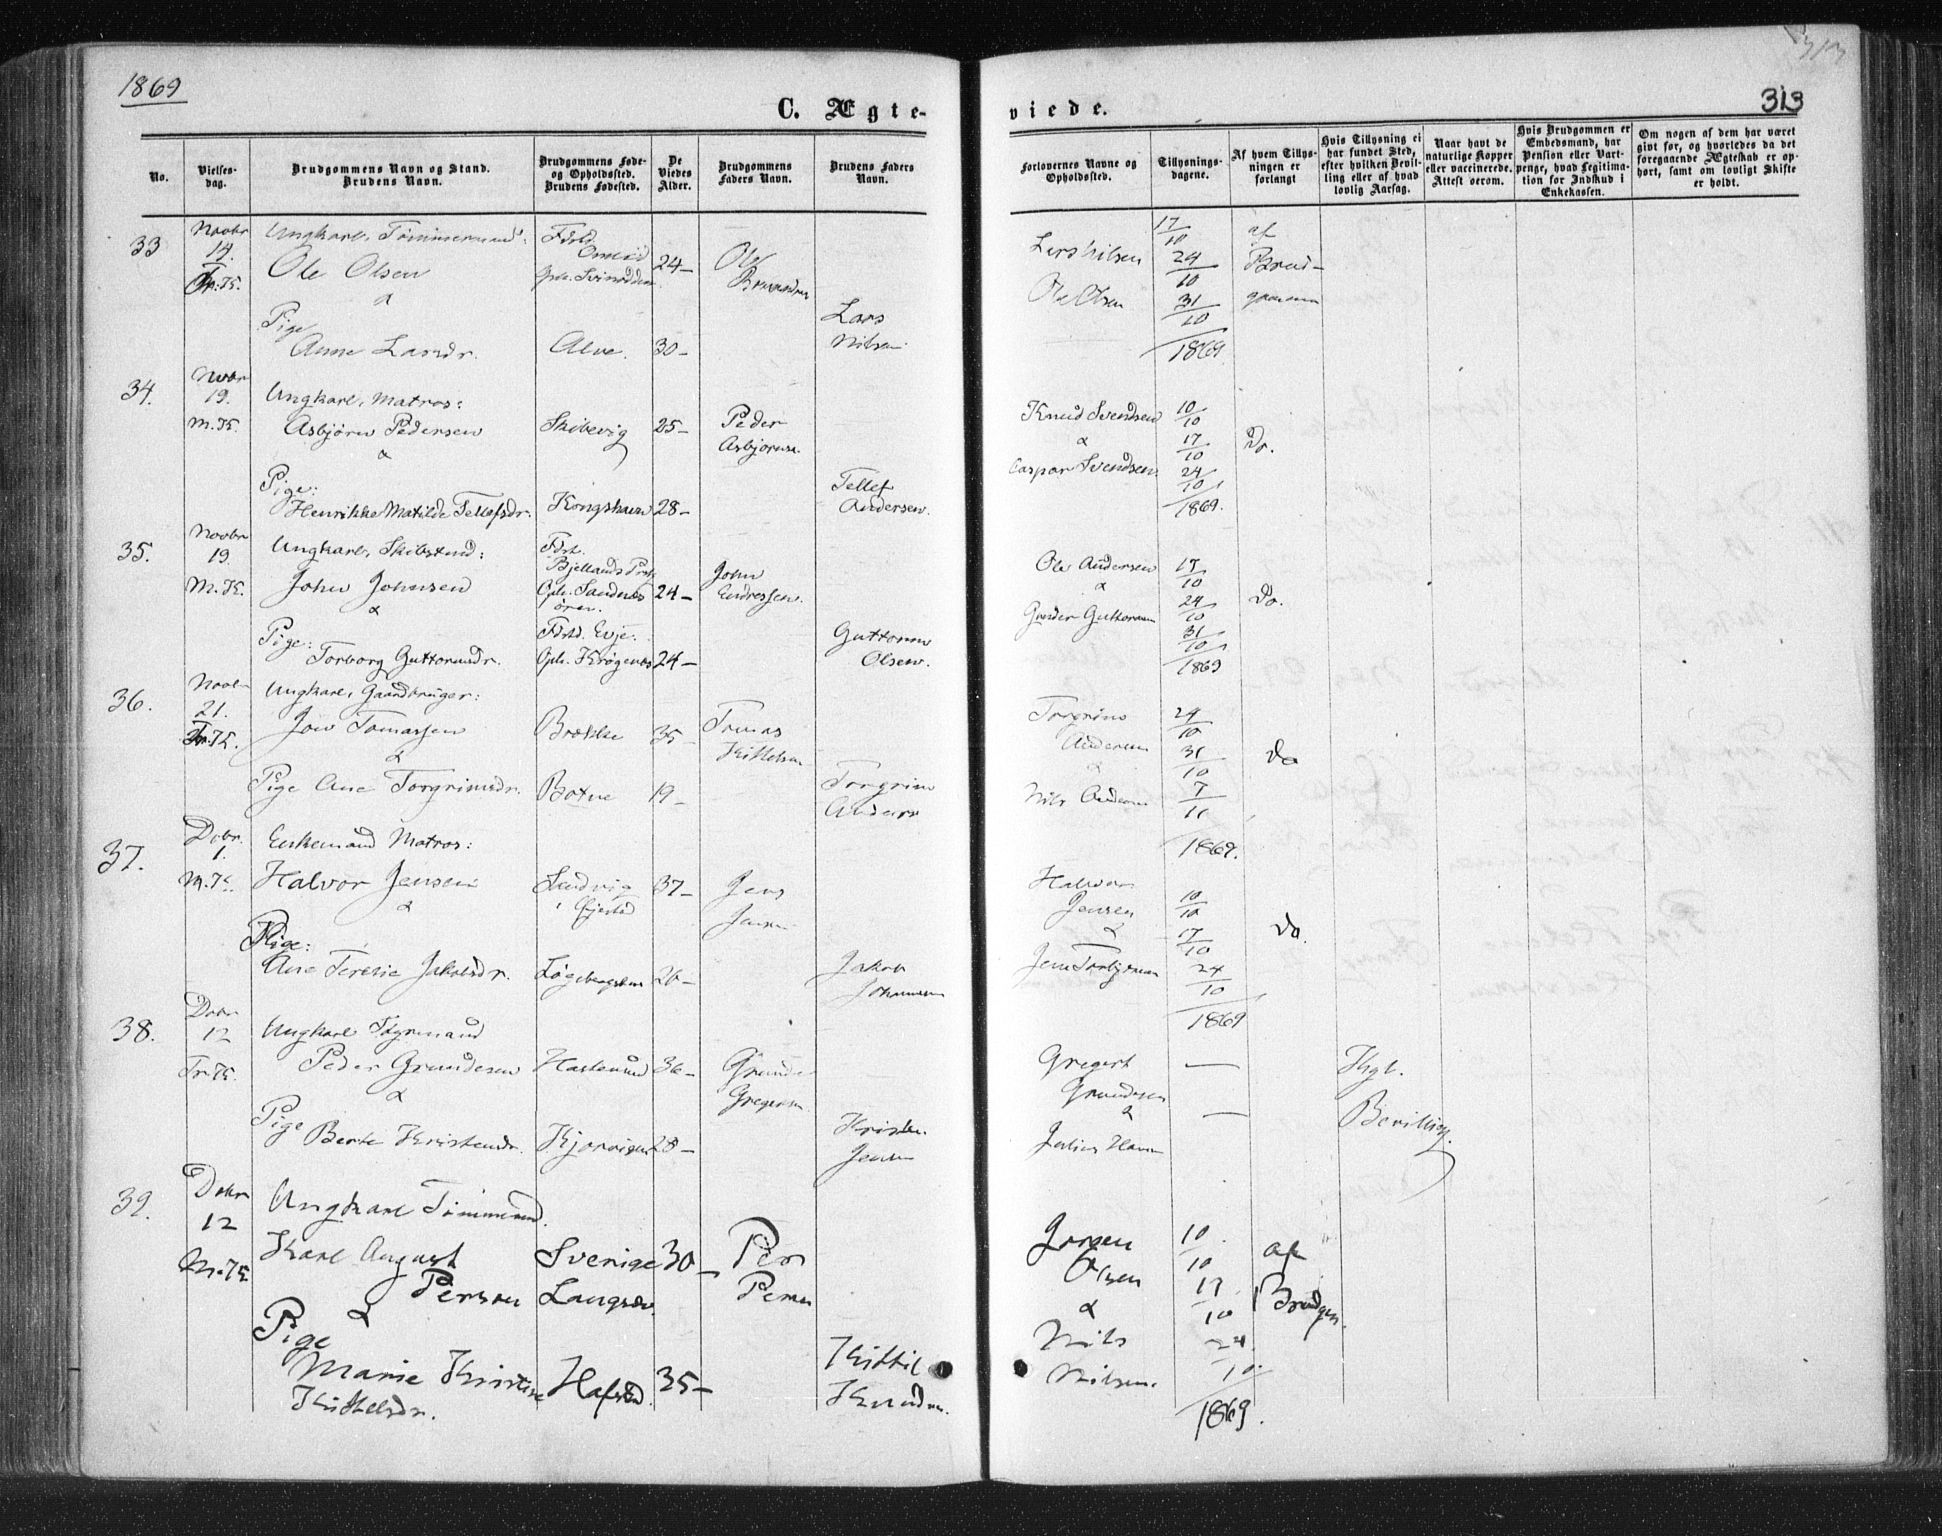 1869
313
313
C. Ægte-
viede.
No.
Vielses-
dag.
Brudgommens Navn og Stand.
Brudens Navn.
Brudgommens Føde-
og Opholdssted.
Brudens Fødested.
De
Viedes
Alder.
Brudgommens
Faders Navn.
Brudens Faders
Navn.
Forlovernes Navne og
Opholdssted.
Tillysnings-
dagene.
Af hvem Tillys-
ningen er
forlangt
Hvis Tillysning ei
har fundet Sted,
efter hvilken Bevil-
ling eller af hvad
lovlig Aarsag.
Naar havt de
naturlige Kopper
eller vaccinerede.
Attest derom.
Hvis Brudgommen er
Embedsmand, har
Pension eller Vart-
penge, hvad Legitima-
tion for Indskud i
Enkekassen.
Om nogen af dem har været
givt før, og hvorledes da det
foregaaende Ægteskab er op-
hørt, samt om lovligt Skifte
er holdt.
33
Novbr
14.
Tr. K.
Ungkarl, Tømmermand:
Ole Olsen
&
Pige
Anne Larsdr.
Fdsted
Oph.
Alve.
24-
30-
Ole
Lars
Nilsen
Lars Nilsen
Ole Olsen
17/10
24/10
31/10
1869
af
Brud-
gommen
34.
Novbr
19.
M. K.
Ungkarl, Matros:
Asbjörn Pedersen
&
Pige:
Henrikke Matilde Tellefsdr.
Skibevig
Kongshavn
25-
28-
Peder
Asbjornsen
Tellef
Andersen.
Knud Svendsen
&
Caspar Svendsen
10/10
17/10
24/10
1869.
Do.
35.
Novbr
19.
M. K.
Ungkarl, Skibstmd:
John Johnsen
&
Pige:
Torborg Guttormsdr.
Fdst.
Bjellands Prst
Oph. Sandnes
øren.
Fdstd. Evje.
Oph. Krøgenes
24-
24-
John
Endressen.
Guttorm
Olsen.
Ole Andersen
&
Gunder Guttormsen
17/10
24/10
31/10
1869
Do.
36.
Novbr
21.
Tr. K.
Ungkarl, Gaardbruger:
Jon Tomassen
&
Pige Ane Torgrimsdr.
Brække
Botne
35-
19-
Tomas
Kittelsen
Torgrim
Anders
Torgrim
Andersen
&
Nils Andersen
24/10
31/10
7/11
1869.
Do
37.
Debr.
1.
M. K.
Enkemand Matros:
Halvor Jensen
&
Pige:
Ane Teresie Jakobsdr.
Sandvig
i Øjestad
37-
26-
Jens
Jensen
Jakob
Johannesen
Halvor
Jensen
&
Jens Torbjørnsen
10/10
17/10
24/10
1869
Do.
38.
Debr
12
Tr. K.
Ungkarl Styrmand
Peder Grundesen
&
Pige
Berte Kristensdr.
Hastensund
Kjorvigen
36-
28-
Grunde
Gregersen
Kristen
Jensen
Gregert
Grundesen
&
Julius Hansen
—
—
Kgl.
Bevilling.
39.
Debr
12
M. K.
Ungkarl Tømmermd.
Karl August
Person
&
Pige
Marie Kristine
Kittelsdr.
Sverige
Langsæv.
Hafsted.
30-
35-
Per
Person
Kittil
Knudsen.
Jorgen
Olsen
&
Nils
Nilsen.
10/10
17/10
24/10
1869.
af
Brudgom.